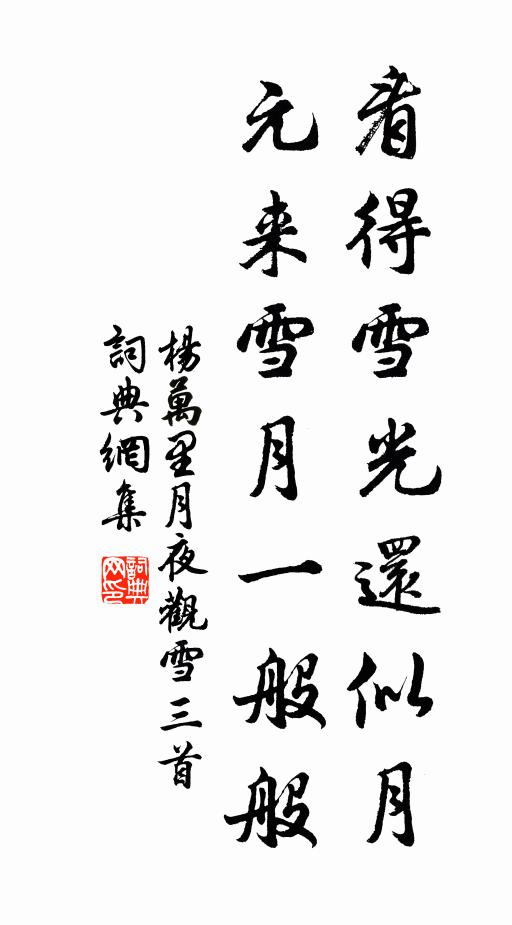 看得雪光還似月
元来雪月一般般
楊萬里月夜觀雪三首
詞典網集
詞典
网印